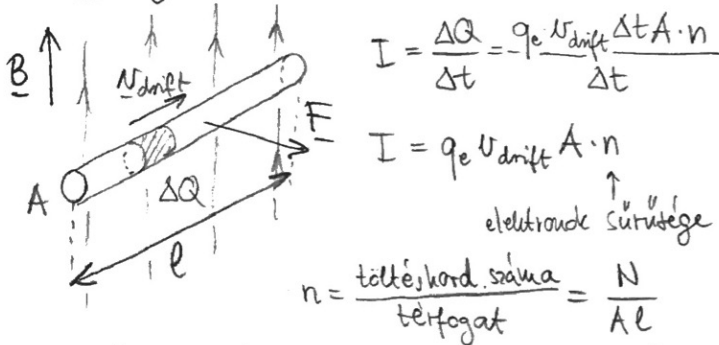 B
v_drift
F
A
ΔQ
l
I = ΔQ/Δt = q_e v_drift Δt A·n / Δt
I = q_e v_drift A·n
↑
elektronok sűrűsége
n = töltéshord. száma / térfogat = N / Al